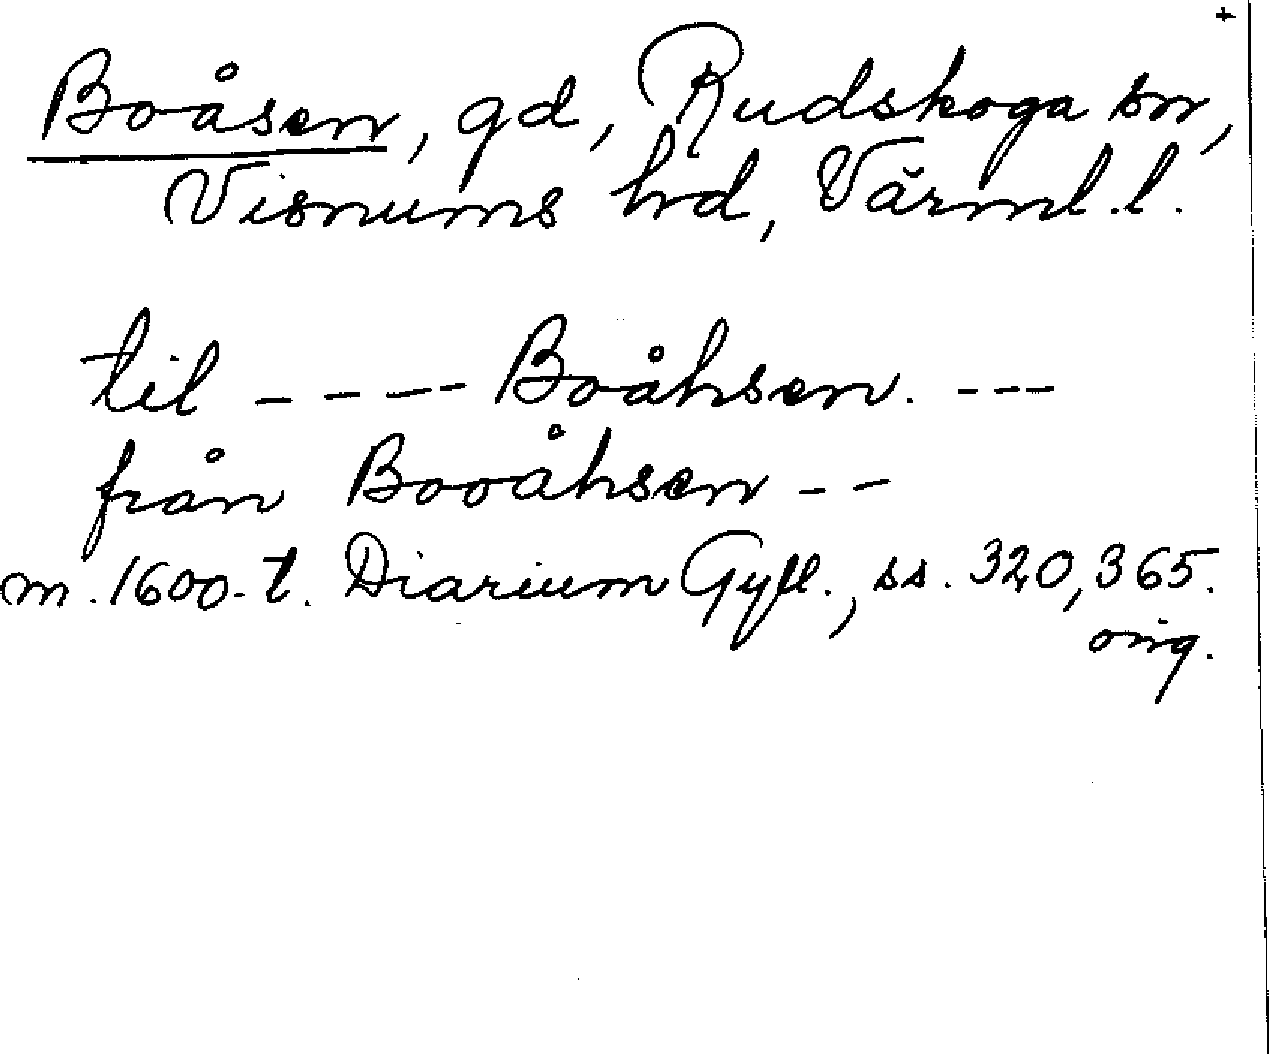 +
Boåsen, gd, Rudskoga sn,
Visnums hd, Värml. l.
til ---- Boåhsen. ---
från Booåhsen --
m. 1600-t. Diarium Gyll., ss. 320, 365.
orig.